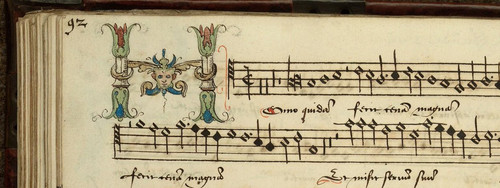 92
HOmo quidã fecit cenã magnã
fecit cenã magnã Et misit seruum suũ